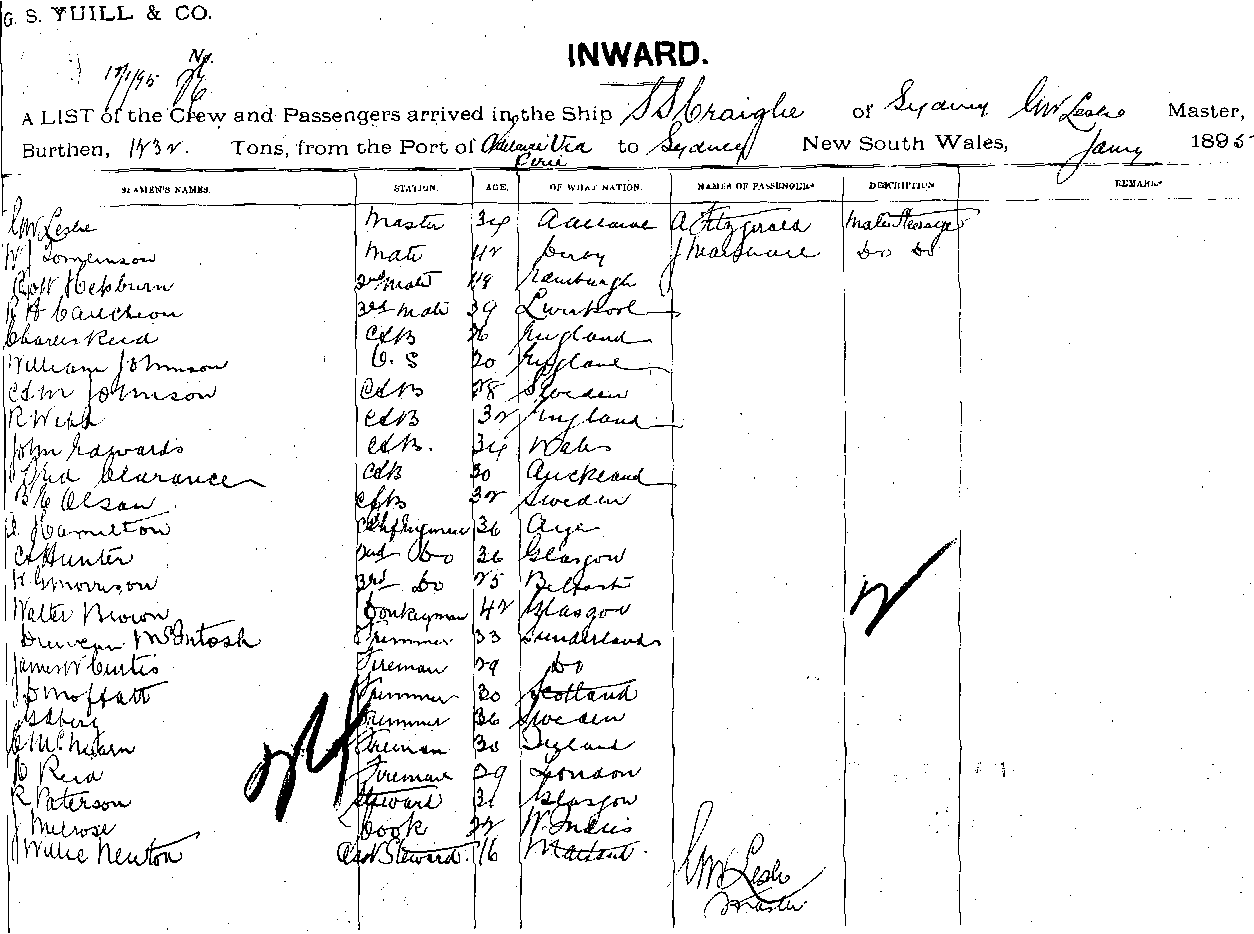 G. S. YUILL & CO.
INWARD.
No.
A LIST of the Crew and Passengers arrived in the Ship SS Craiglie of Sydney CW Leslie Master,
Burthen, 1832. Tons, from the Port of Via Pirie to Sydney New South Wales, Jany 1895
SEAMEN'S NAMES. STATION. AGE. OF WHAT NATION. NAMES OF PASSENGERS DESCRIPTION REMARKS
CW Leslie Master 34 Adelaide A Fitzgerald
W J Tomlinson Mate 42 Derby
Hepburn 2nd Mate 49 Edinburgh Do Do
3rd Mate 39 Liverpool
Charles Reid AB 26 England
William Johnson O. S 20 England
A M Johnson AB 28 Sweden
R Webb AB 32 England
John Edwards AB. 34 Wales
Fred Clarance AB 30 Auckland
Olsan AB 32 Sweden
Hamilton 36
A Hunter 2nd Do 36 Glasgow
H G Morrison 3rd Do 25 Belfast
Walter Brown Donkeyman 42 Glasgow
Duncan McIntosh Trimmer 33 Sunderland
James W Curtis Fireman 29 Do
Moffatt Trimmer 30 Scotland
Trimmer 36 Sweden
Fireman 30 England
Reid Fireman 29 London
R Paterson Steward 31 Glasgow
J Melrose Cook 22 W. Indies
Willie Newton Steward. 16
24
2
CW Leslie
Master